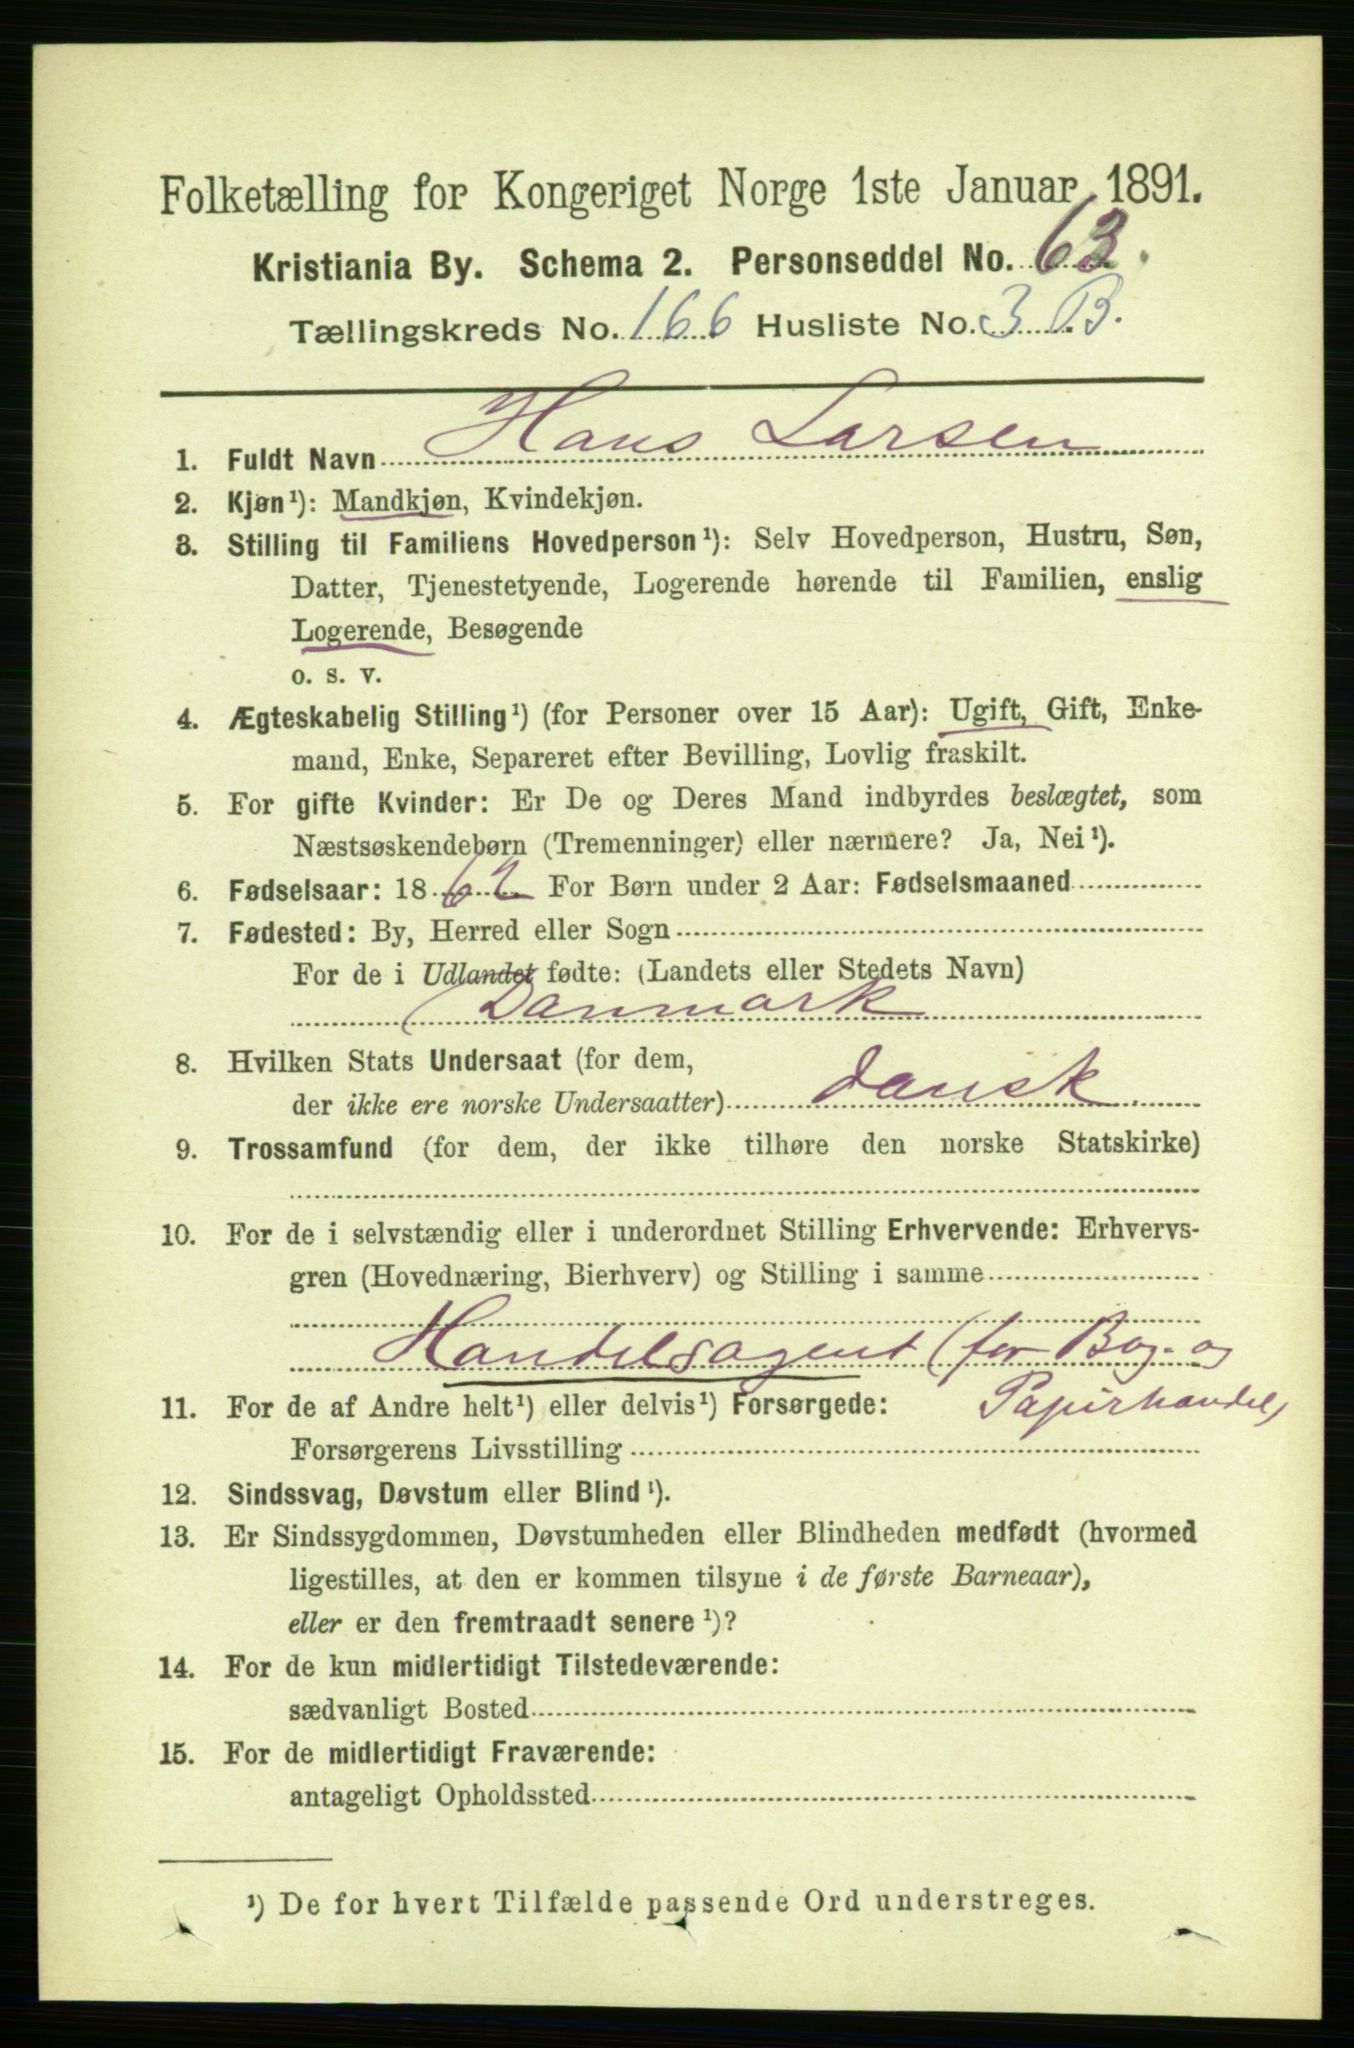 Folketælling for Kongeriget Norge 1ste Januar 1891.
Kristiania By. Schema 2. Personseddel No. 63.
Tællingskreds No. 166 Husliste No. 3 B.
1. Fuldt Navn Hans Larsen
2. Kjøn¹): Mandkjøn, Kvindekjøn.
3. Stilling til Familiens Hovedperson¹): Selv Hovedperson, Hustru, Søn,
Datter, Tjenestetyende, Logerende hørende til Familien, enslig
Logerende, Besøgende
o. s. v.
4. Ægteskabelig Stilling¹) (for Personer over 15 Aar): Ugift, Gift, Enke-
mand, Enke, Separeret efter Bevilling, Lovlig fraskilt.
5. For gifte Kvinder: Er De og Deres Mand indbyrdes beslægtet, som
Næstsøskendebørn (Tremenninger) eller nærmere? Ja, Nei¹).
6. Fødselsaar: 1862 For Børn under 2 Aar: Fødselsmaaned
7. Fødested: By, Herred eller Sogn
For de i Udlandet fødte: (Landets eller Stedets Navn)
Danmark
8. Hvilken Stats Undersaat (for dem,
der ikke ere norske Undersaatter) dansk
9. Trossamfund (for dem, der ikke tilhøre den norske Statskirke)
10. For de i selvstændig eller i underordnet Stilling Erhvervende: Erhvervs-
gren (Hovednæring, Bierhverv) og Stilling i samme
Handelsagent (for Bog- og
Papirhandel)
11. For de af Andre helt¹) eller delvis¹) Forsørgede:
Forsørgerens Livsstilling
12. Sindssvag, Døvstum eller Blind¹).
13. Er Sindssygdommen, Døvstumheden eller Blindheden medfødt (hvormed
ligestilles, at den er kommen tilsyne i de første Barneaar),
eller er den fremtraadt senere¹)?
14. For de kun midlertidigt Tilstedeværende:
sædvanligt Bosted
15. For de midlertidigt Fraværende:
antageligt Opholdssted
¹) De for hvert Tilfælde passende Ord understreges.